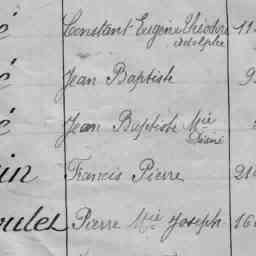 é Constant Eugène Théodore 11
Adolphe
é Jean Baptiste 9
é Jean Baptiste Mie
Désiré
in Francis Pierre 21
oulet Pierre Mie Joseph 16